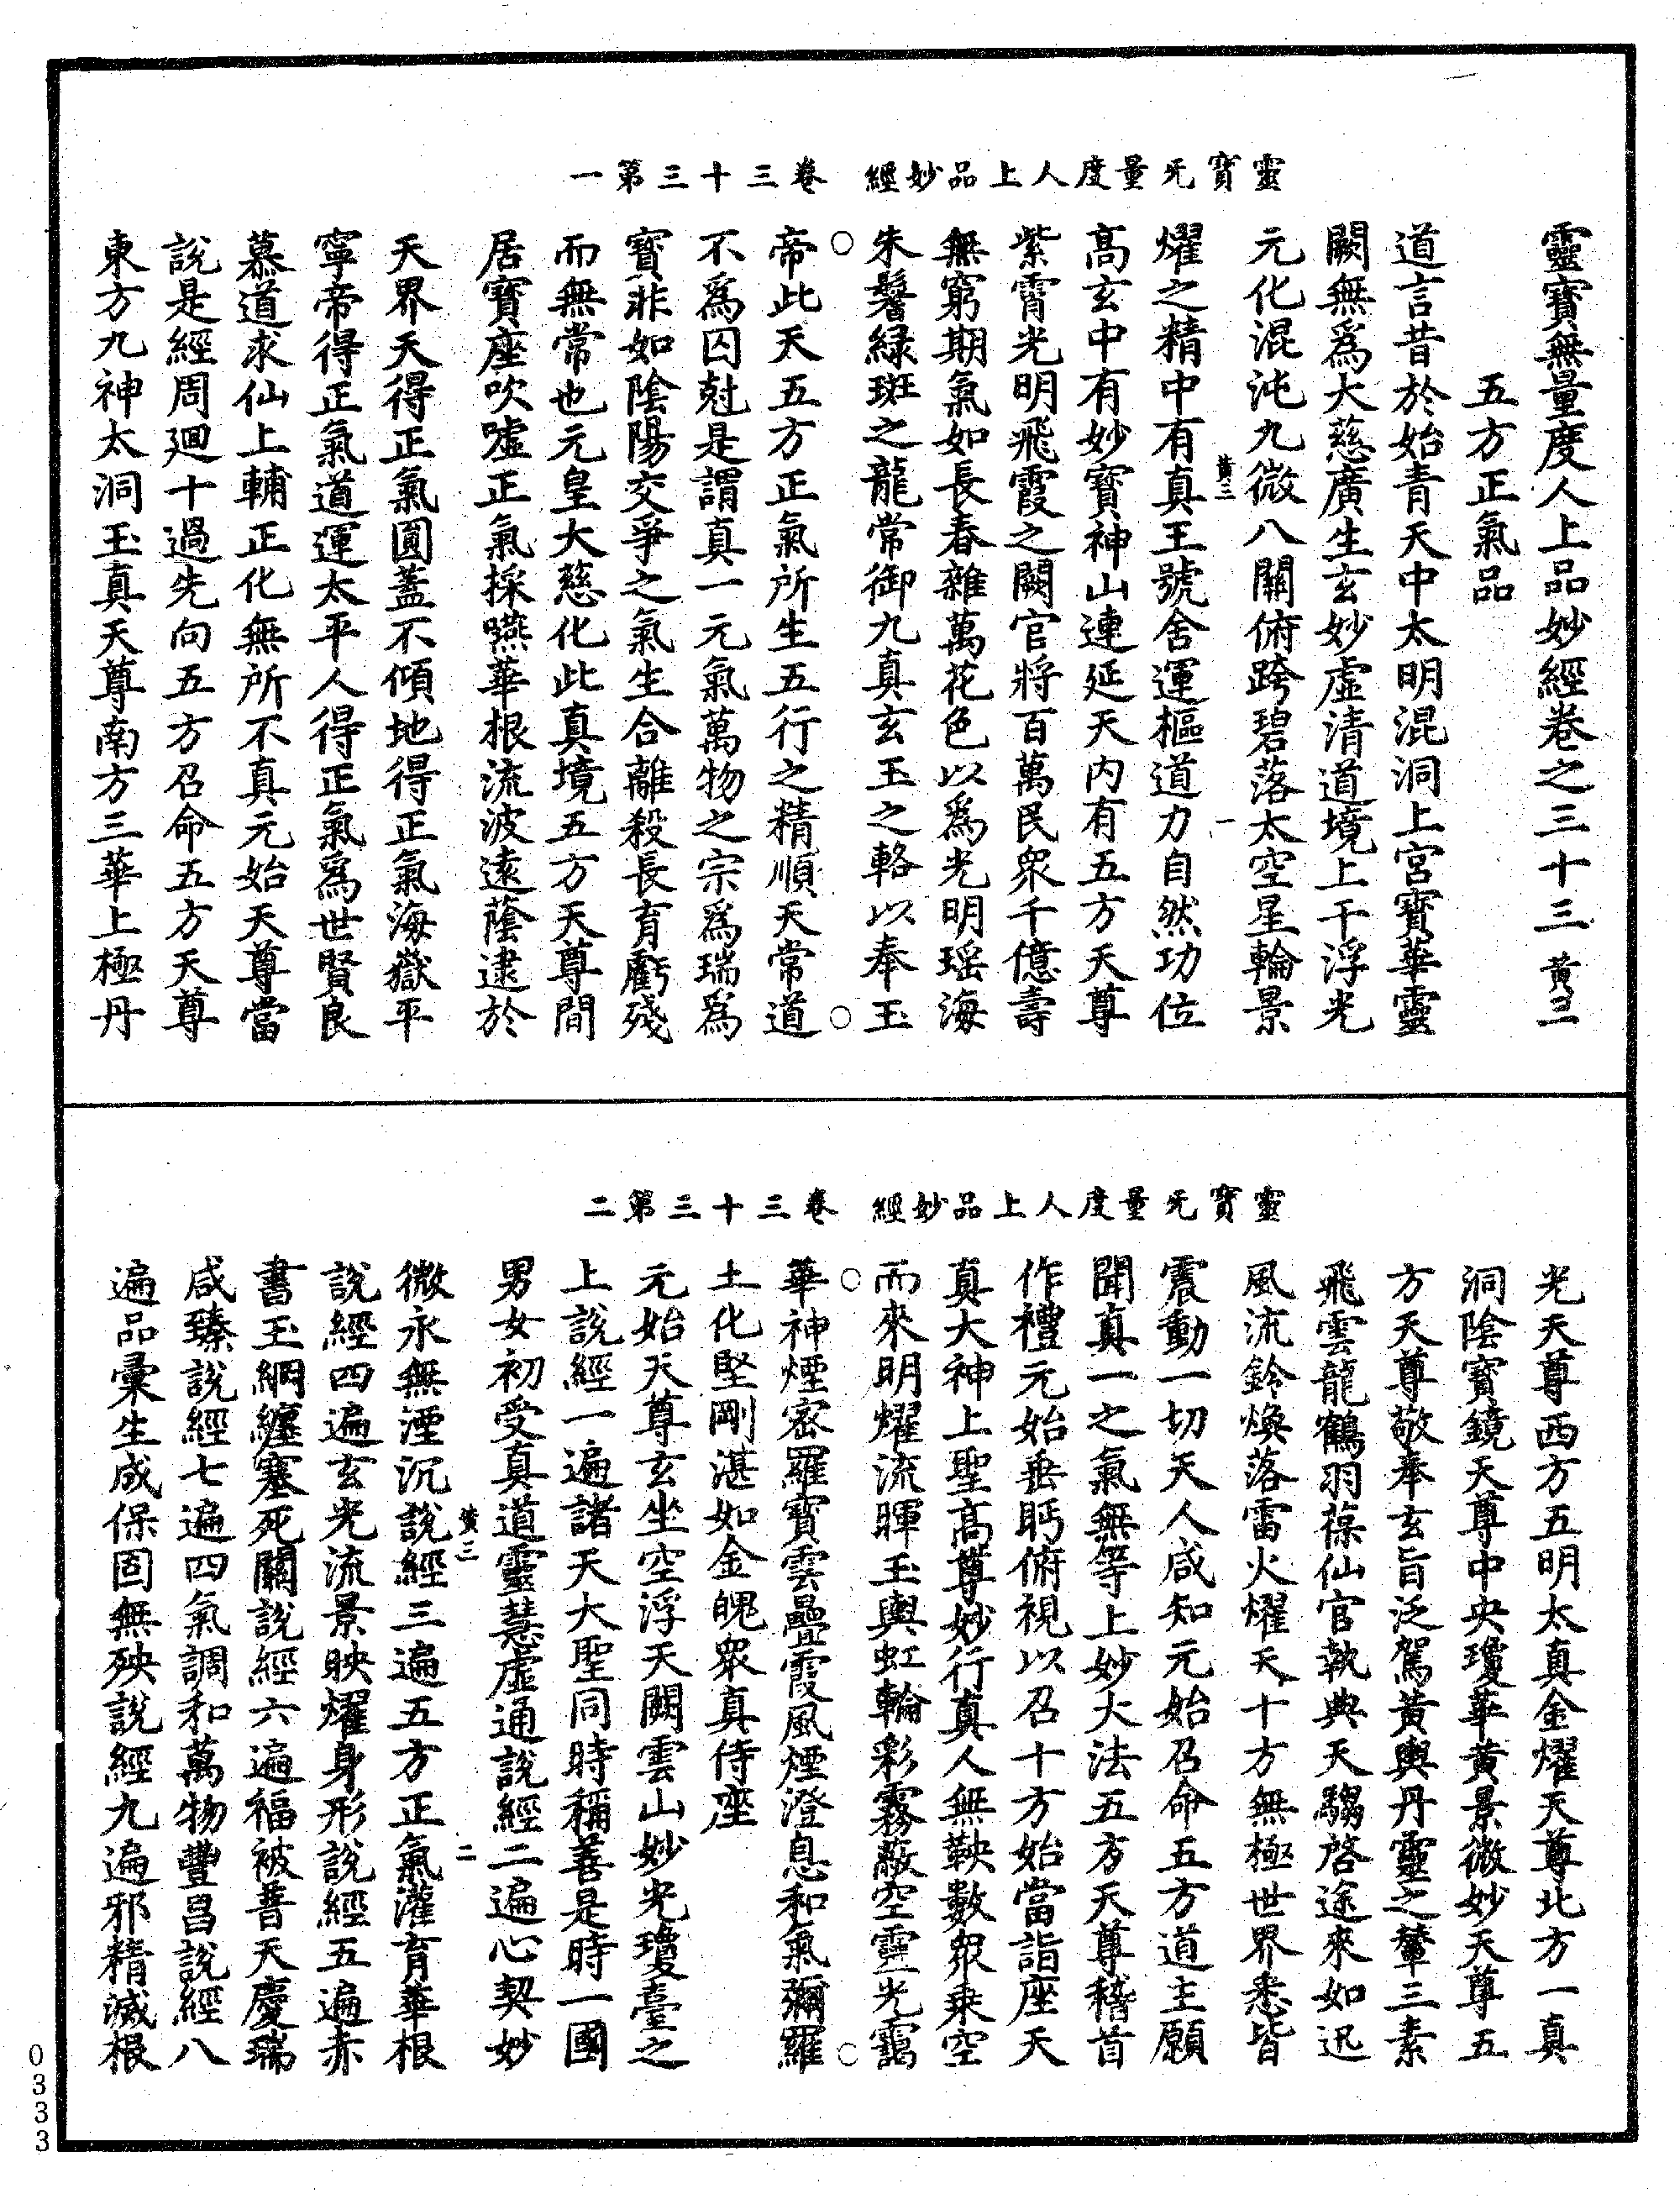 靈寶无量度人上品妙經　卷三十三第一
靈寶無量度人上品妙經卷之三十三　黃三
五方正氣品
道言昔於始青天中太明混洞上宮寶華靈
闕無爲大慈廣生玄妙虛清道境上干浮光
元化混沌九微八關俯跨碧落太空星輪景
黃三　一
燿之精中有真王號舍運樞道力自然功位
高玄中有妙寶神山連延天內有五方天尊
紫霄光明飛霞之闕官將百萬民衆千億壽
無窮期氣如長春雜萬花色以爲光明瑶海
朱鬐綠斑之龍常御九真玄玉之輅以奉玉
帝此天五方正氣所生五行之精順天常道
不爲囚尅是謂真一元氣萬物之宗爲瑞爲
寶非如陰陽交爭之氣生合離殺長育虧殘
而無常也元皇大慈化此真境五方天尊間
居寶座吹噓正氣採嚥華根流波遠蔭逮於
天界天得正氣圓蓋不傾地得正氣海嶽平
寧帝得正氣道運太平人得正氣爲世賢良
慕道求仙上輔正化無所不真元始天尊當
說是經周迴十過先向五方召命五方天尊
東方九神太洞玉真天尊南方三華上極丹
靈寶无量度人上品妙經　卷三十三第二
光天尊西方五明太真金燿天尊北方一真
洞陰寶鏡天尊中央瓊華黃景微妙天尊五
方天尊敬奉玄旨泛駕黃輿丹靈之輦三素
飛雲龍鶴羽葆仙官執典天騶啓途來如迅
風流鈴煥落雷火燿天十方無極世界悉皆
震動一切天人咸知元始召命五方道主願
聞真一之氣無等上妙大法五方天尊稽首
作禮元始垂眄俯視以召十方始當詣座天
真大神上聖高尊妙行真人無鞅數衆乘空
而來明燿流暉玉輿虹輪彩霧蔽空靈光靄
華神煙密羅寶雲疊霞風煙澄息和氣彌羅
土化堅剛湛如金魄衆真侍座
元始天尊玄坐空浮天闕雲山妙光瓊臺之
上說經一遍諸天大聖同時稱善是時一國
男女初受真道靈慧虛通說經二遍心契妙
黃三　二
微永無湮沉說經三遍五方正氣灌育華根
說經四遍玄光流景映燿身形說經五遍赤
書玉綱纏塞死關說經六遍福被普天慶瑞
咸臻說經七遍四氣調和萬物豐昌說經八
遍品彙生成保固無殃說經九遍邪精滅根
0333